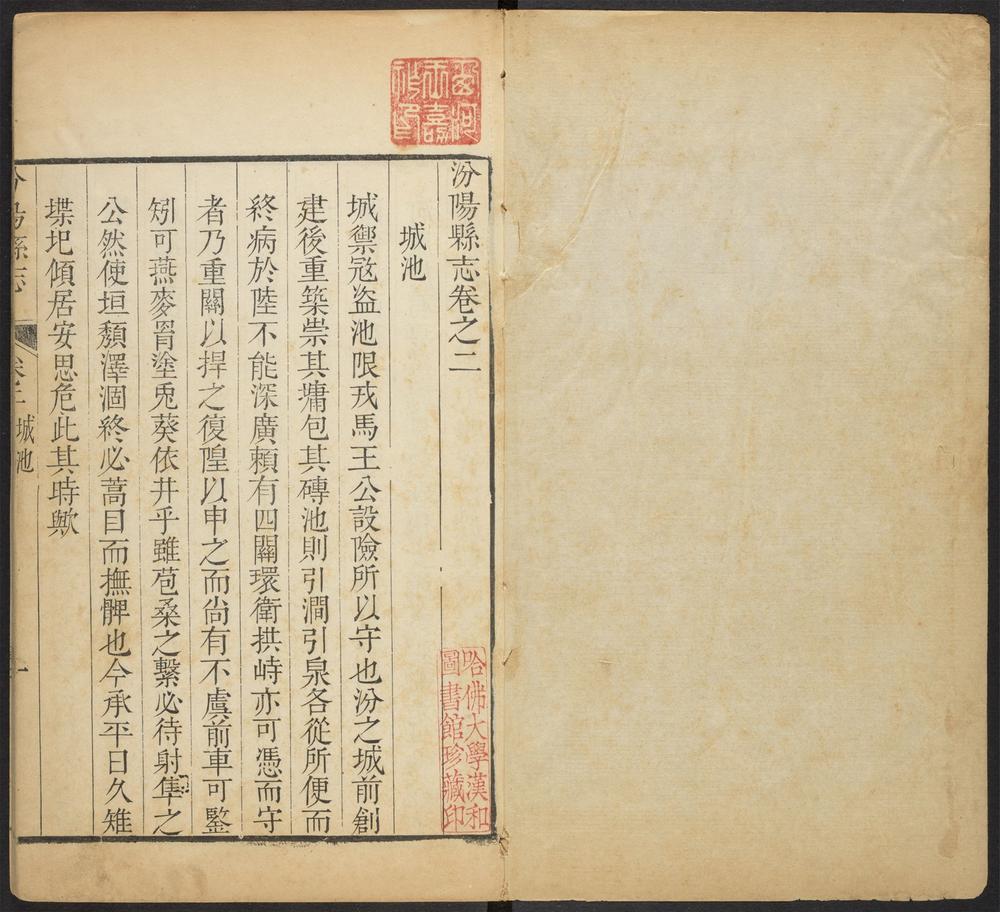 汾陽縣志卷之二
城池
城禦宼盗池限戎馬王公設險所以守也汾之城前創
建後重築崇其墉包其磚池則引澗引泉各從所便而
終病於陸不能深廣頼有四關環衛拱峙亦可憑而守
者乃重關以捍之復隍以申之而尚有不虞前車可鑒
矧可燕麥罥塗兎葵依井乎雖苞桑之繫必待射隼之
公然使垣頹澤涸終必蒿目而撫髀也今承平日久雉
堞圮傾居安思危此其時歟
汾陽縣志 卷二 城池 一
哈佛大學漢和
圖書館珍藏印